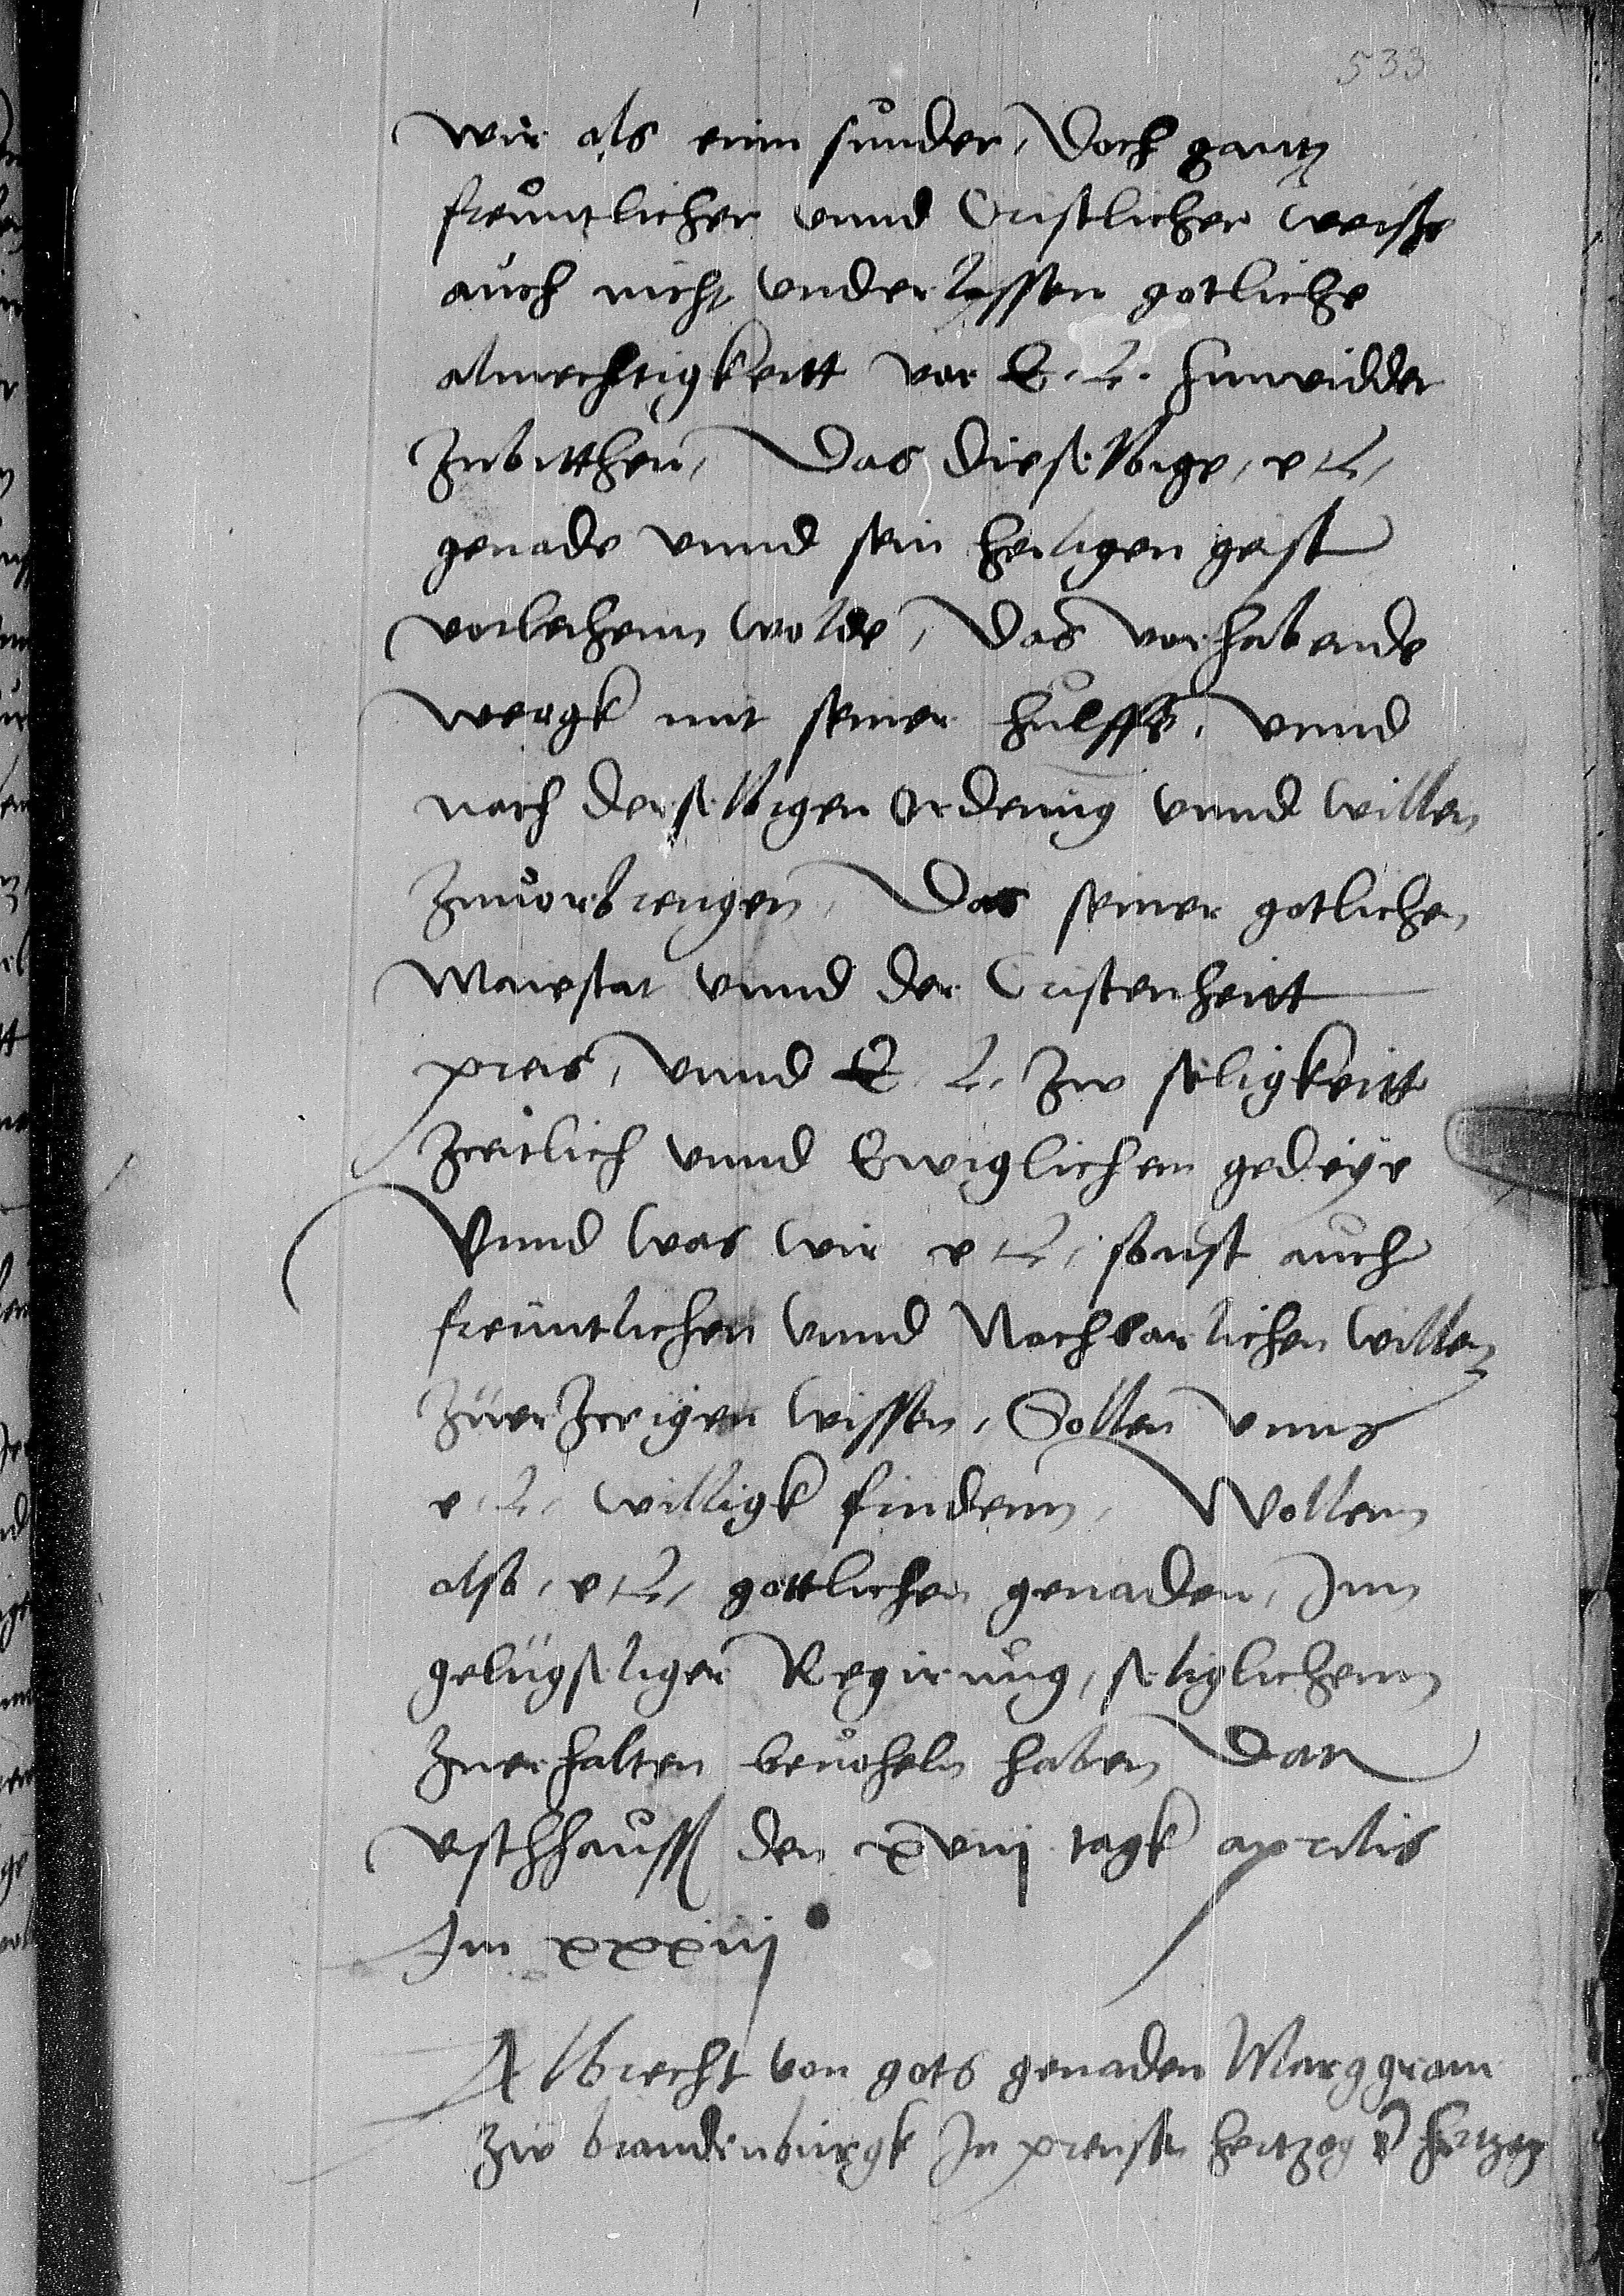 533
wir als einn sünder, doch gantz
freuntlicher vnnd Cristlicher weisße
auch nicht vnderlassen gotliche
almechtigkeitt vor E. L. hinwidder
zubitthen, Das dieselbige, e L,
genade vnnd sein heiligen geist
vorleihenn wolde, Das vorhabende
wergk mit seiner hulffe, vnnd
nach derselbigen Ordenung vnnd willen
zuuorbrengen, Das seiner gotlichen
Maiestat vnnd der Cristenheitt
preis, vnnd E. L. zw seligkeitt
zeitlich vnnd Ewiglichenn gedeÿe
Vnnd was wir e L, sonst auch
freuntlichen vnnd Nachbarlichen willen
zuerzeeigen wissen, Sollen vnns
e. L. willigk findenn, Wollenn
also, e L, gottlichen genaden, Inn
gelugseliger Regirung, seliglichenn
zuerhalten beuoheln haben Dat
vischhauss den xviij tagk aprilis
Im xxxiiij
Albrecht von gots genaden Marggraue
zw brandenburgk In preussen hertzog